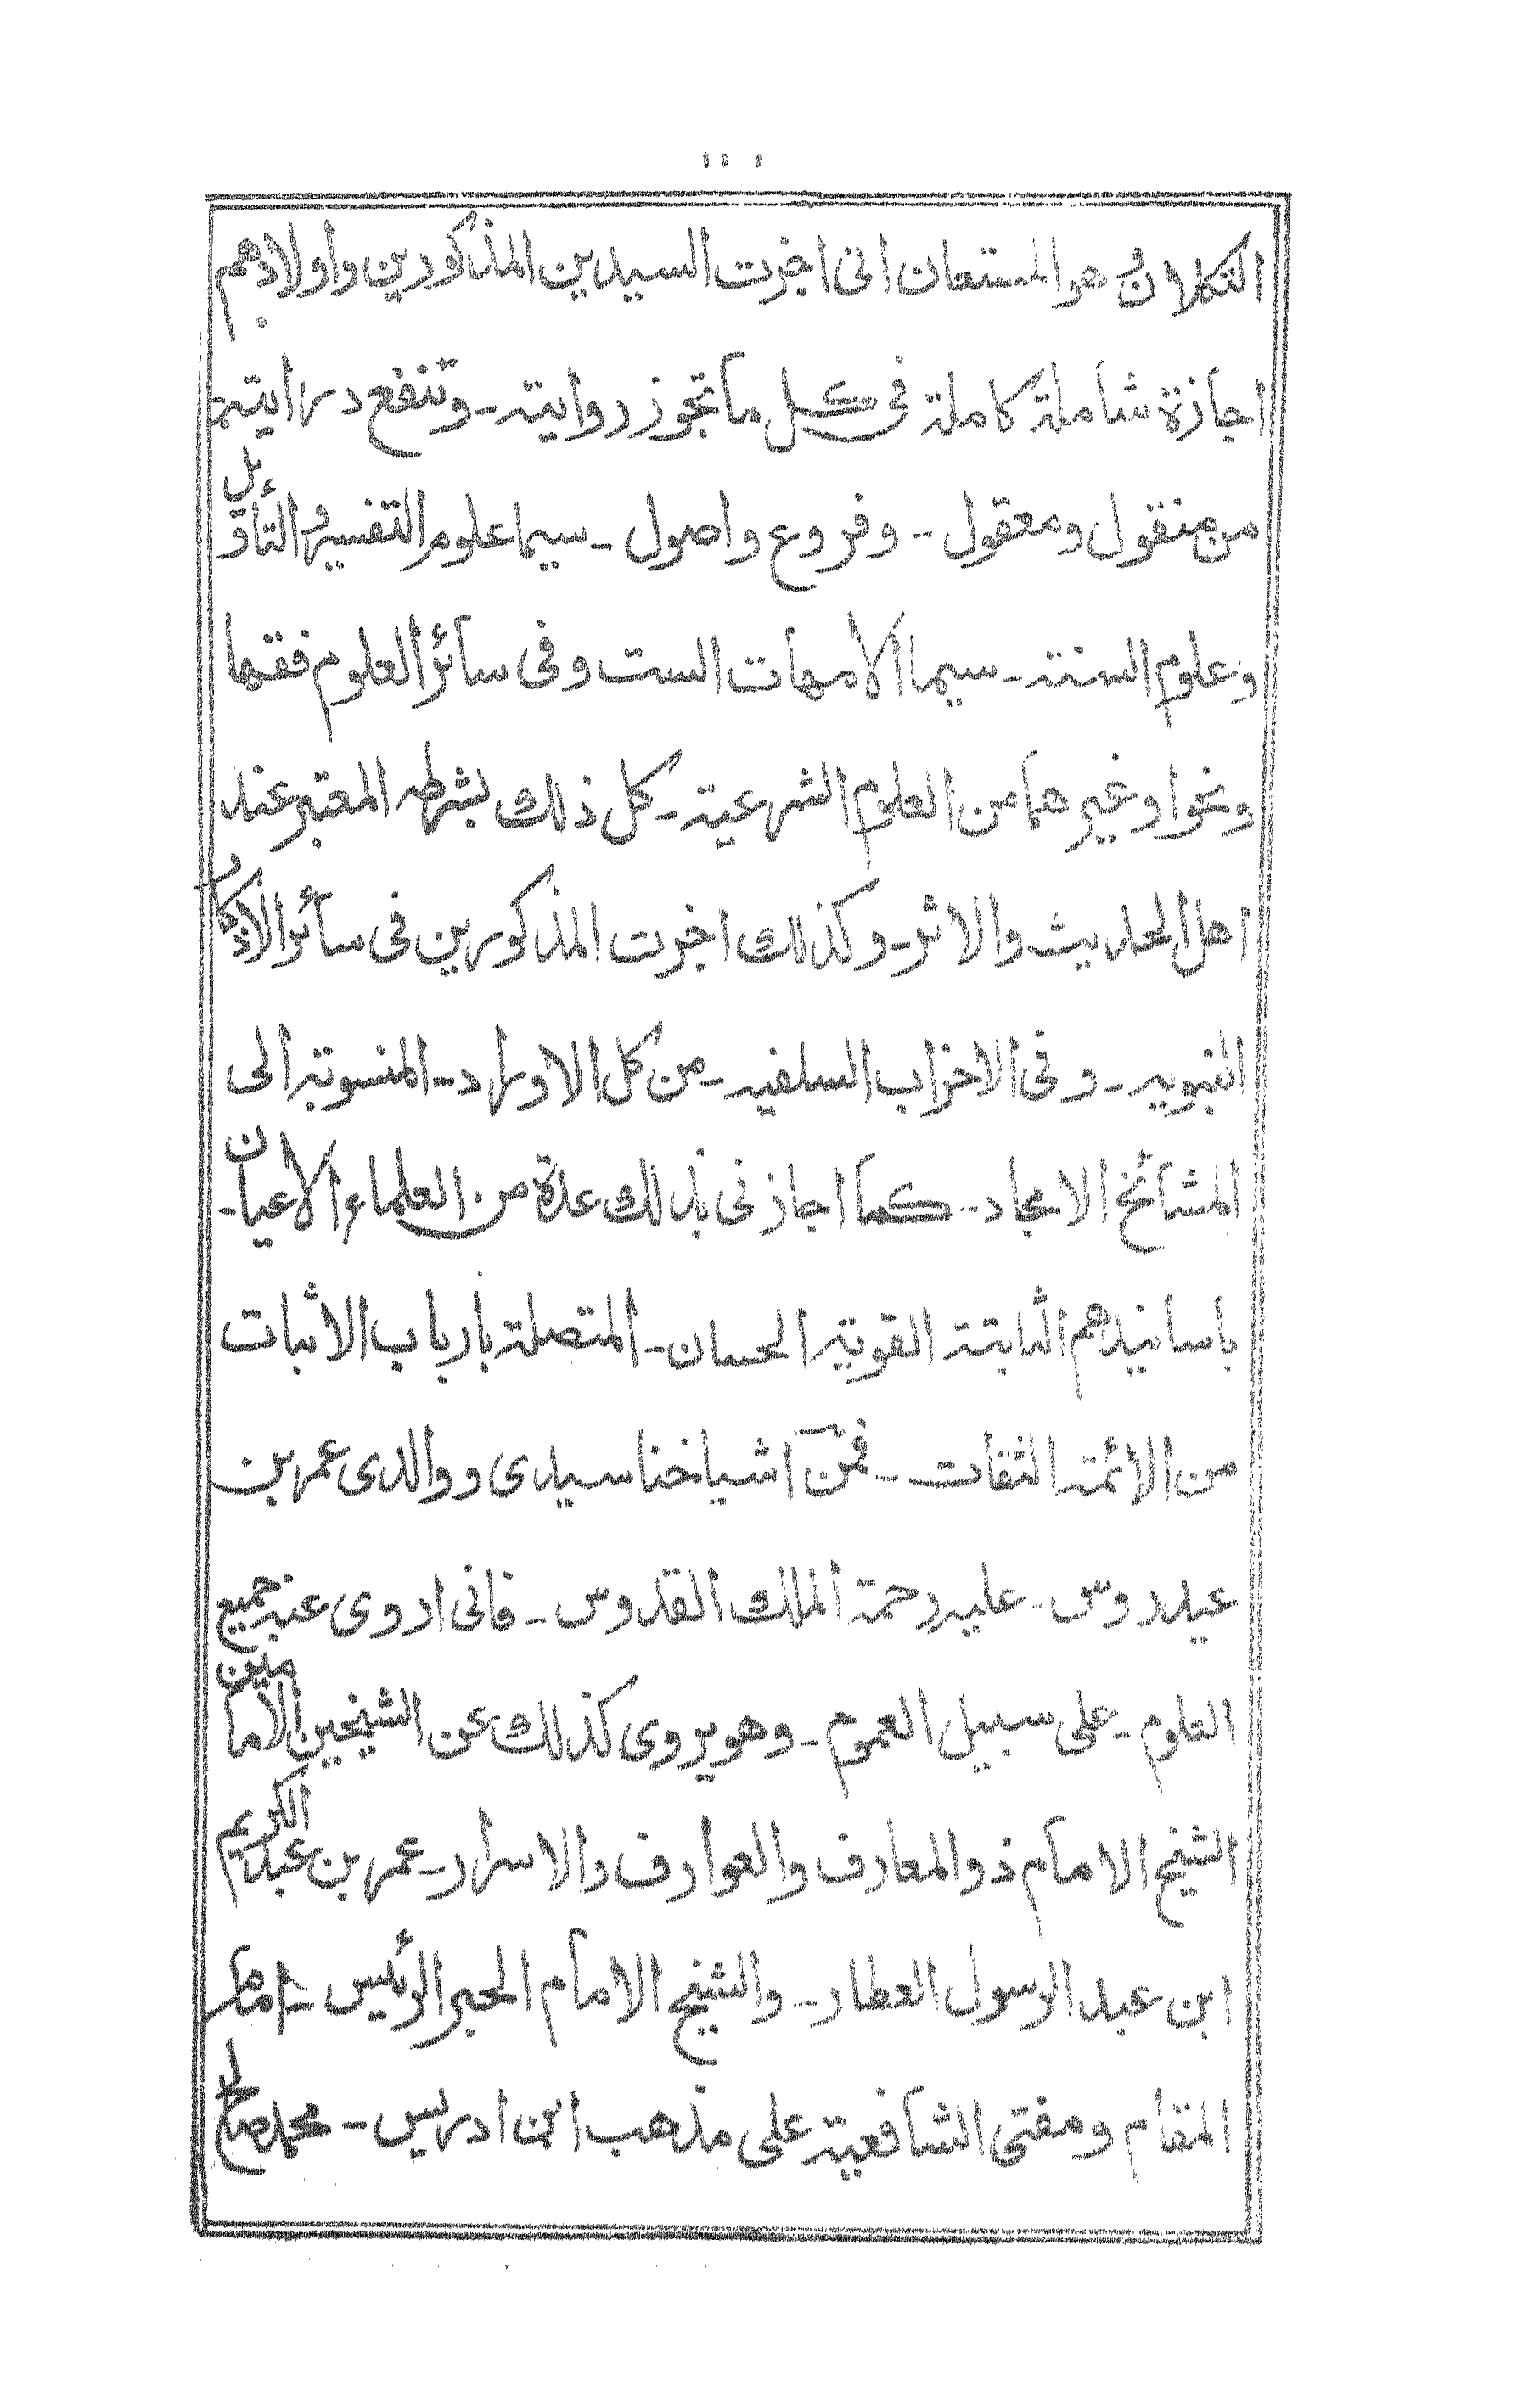 التكلان وهو المستعان انى اجزت السيدين المذكورين واولادهم
اجازة شاملة كاملة فى كل ما تجوز روايته ـ وتنفع درايته
من منقول ومعقول ـ وفروع واصول ـ سيما علوم التفسير والتأويل
وعلوم السنة ـ سيما الامهات الست وفى سائر العلوم فقها
ونحوا وغيرهما من العلوم الشرعية ـ كل ذلك بشرطه المعتبر عند
اهل الحديث والاثر ـ وكذلك اجزت المذكورين فى سائر الاذكار
النبويه ـ وفى الاحزاب السلفيه ـ من كل الاوراد ـ المنسوبة الى
المشائخ الامجاد ـ كما اجازنى بذلك عدة من العلماء الاعيان ـ
باسانيدهم الثابتة القوية الحسان ـ المتصلة بارباب الاثبات
من الائمة الثقات ـ فمن اشياخنا سيدى ووالدى عمر بن
عيدروس ـ عليه رحمة الملك القدوس ـ فانى اروى عنه جميع
العلوم ـ على سبيل العموم ـ وهو يروى كذلك عن الشيخين الامامين
الشيخ الامام ذو المعارف والعوارف والاسرار ـ عمر بن عبد الكريم
ابن عبد الرسول العطار ـ والشيخ الامام الحبر الرئيس ـ امام
المقام ومفتى الشافعية على مذهب ابن ادريس ـ محمد صالح